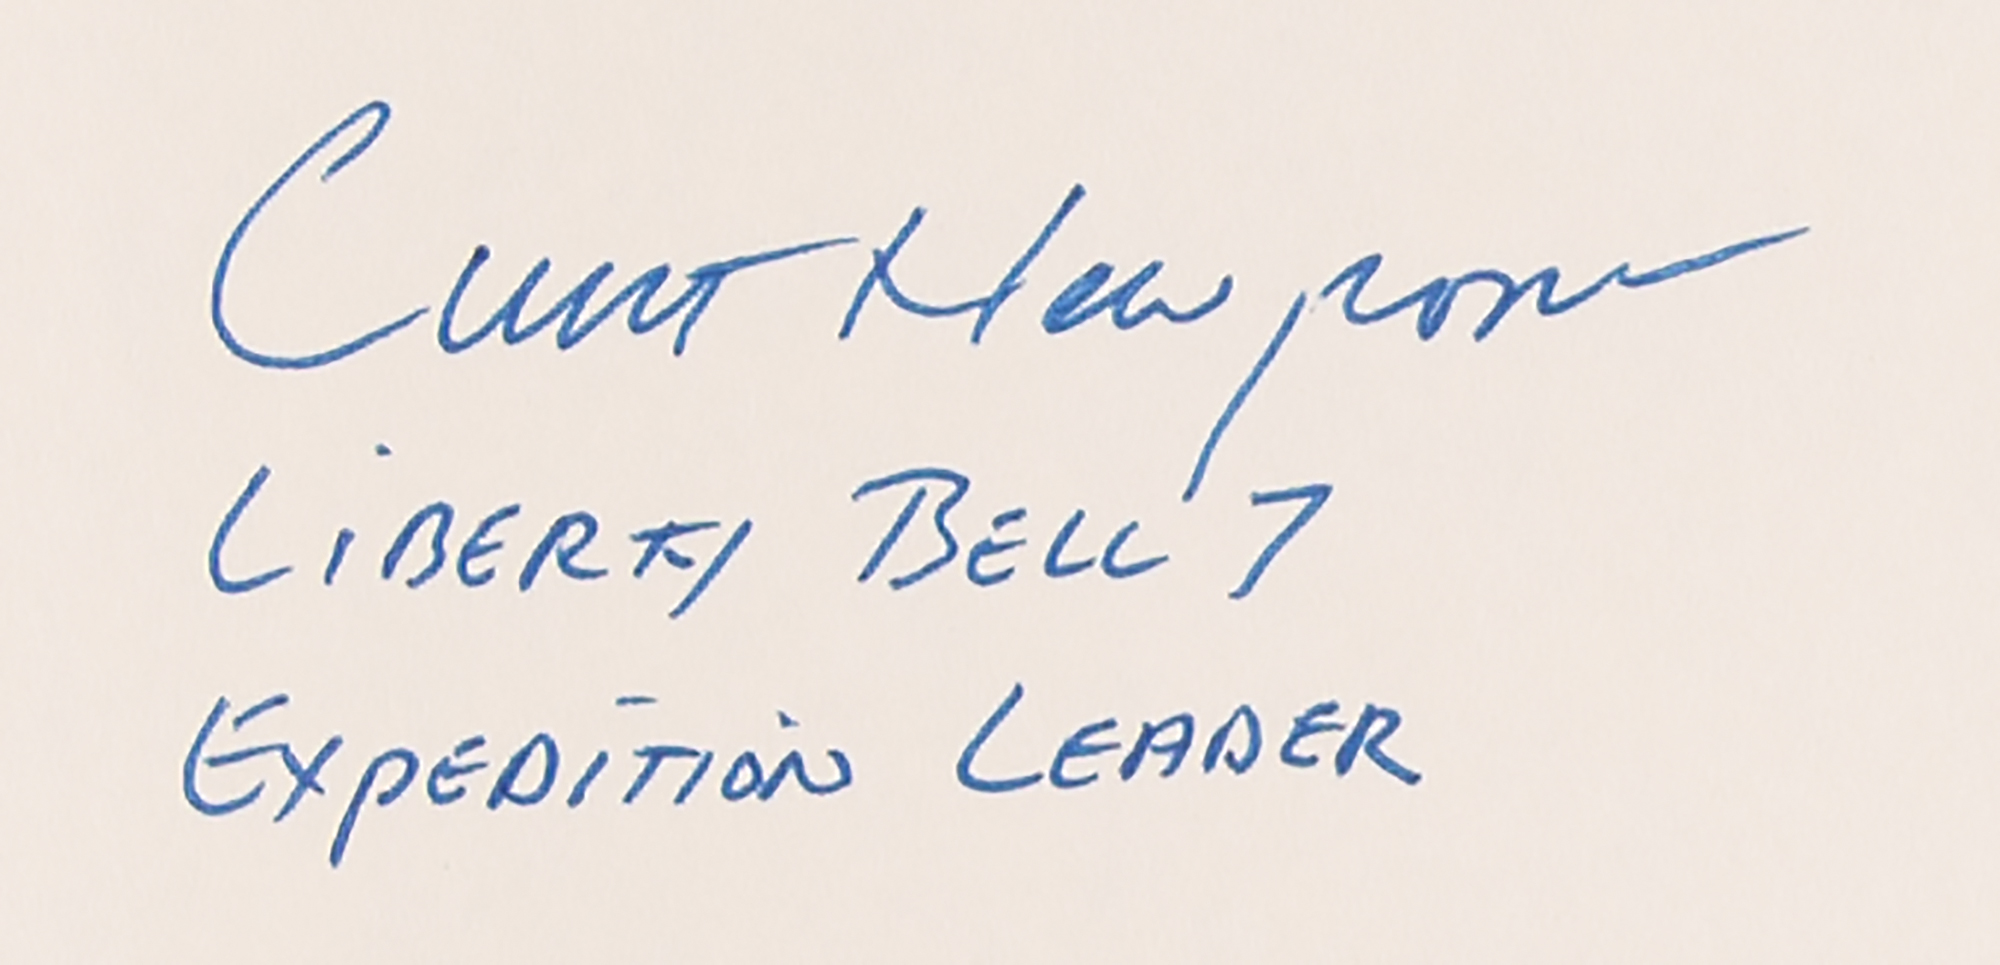 Curt Newport
Liberty Bell 7
Expedition Leader